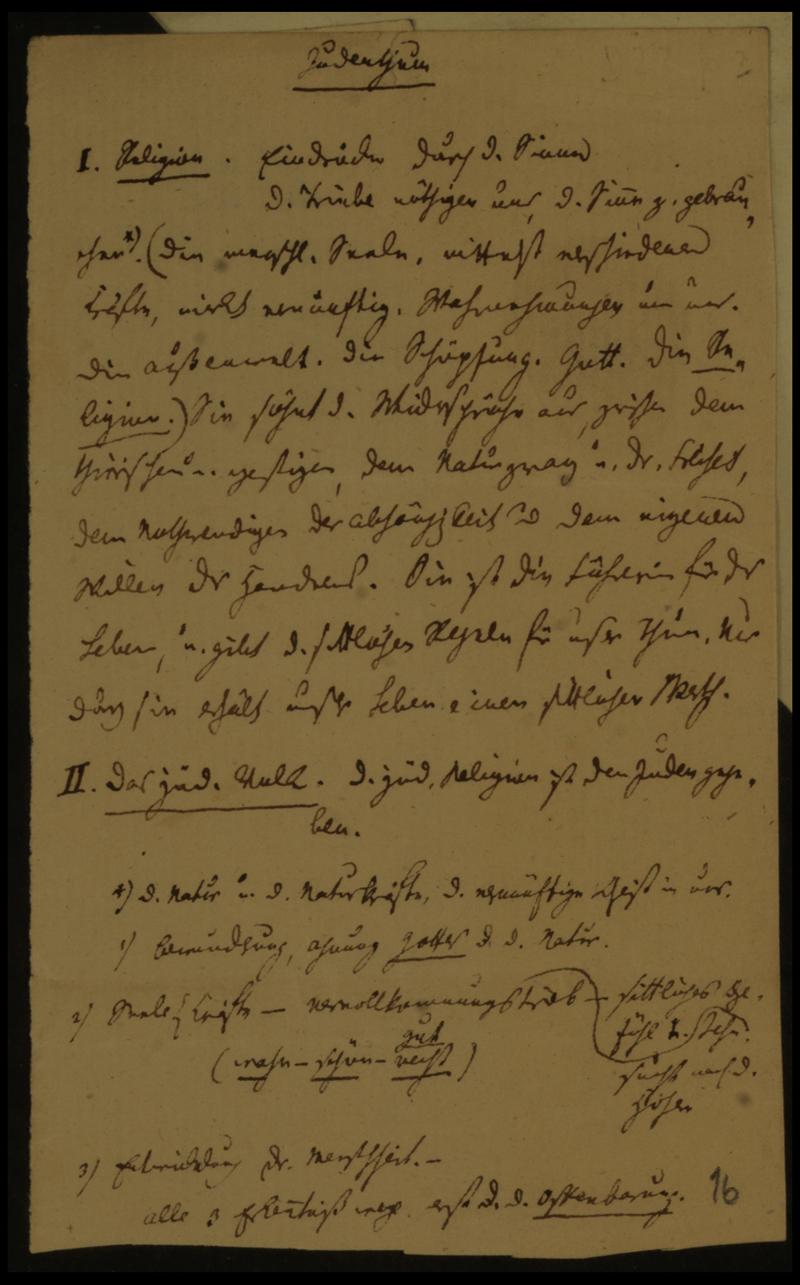 Judenthum
I. Religion. Eindrücke durch d. Sinne
d. Triebe nöthigen uns, d. Sinne z. gebrau„
chen*). (Die menschl. Seele, mittelst verschiedener
Kräfte, wirkt vernünftig. Wahrnehmungen in uns.
Die Außenwelt. Die Schöpfung. Gott. Die Re„
ligion.) Sie söhnt d. Widersprüche aus, zwischen dem
thierischen u. geistigen, dem Naturzwang u. dr. Freiheit,
dem Nothwendigen der Abhängigkeit u dem eigenen
Willen des Handelns. Sie ist die Führerin für das
Leben, u. gibt d. sittlichen Regeln für unser Thun. Nur
durch sie erhält unser Leben einen sittlichen Werth.
II. Das jüd. Volk. D. jüd. Religion ist den Juden gege„
ben.
*) d. Natur u. d. Naturkräfte, d. vernünftige Geist in uns.
1) Bewunderung, Ahnung Gottes d. d. Natur.
2) Seele Kräfte — Vervollkommnungstrieb — sittliches Ge„
fühl u. Sehn„
gut
(wahr – schön – recht)
sucht nach d.
Höhern
3) Entwicklung dr. Menschheit. —
alle 3 Erkentniß wege erst d. d. Offenbarung.
16